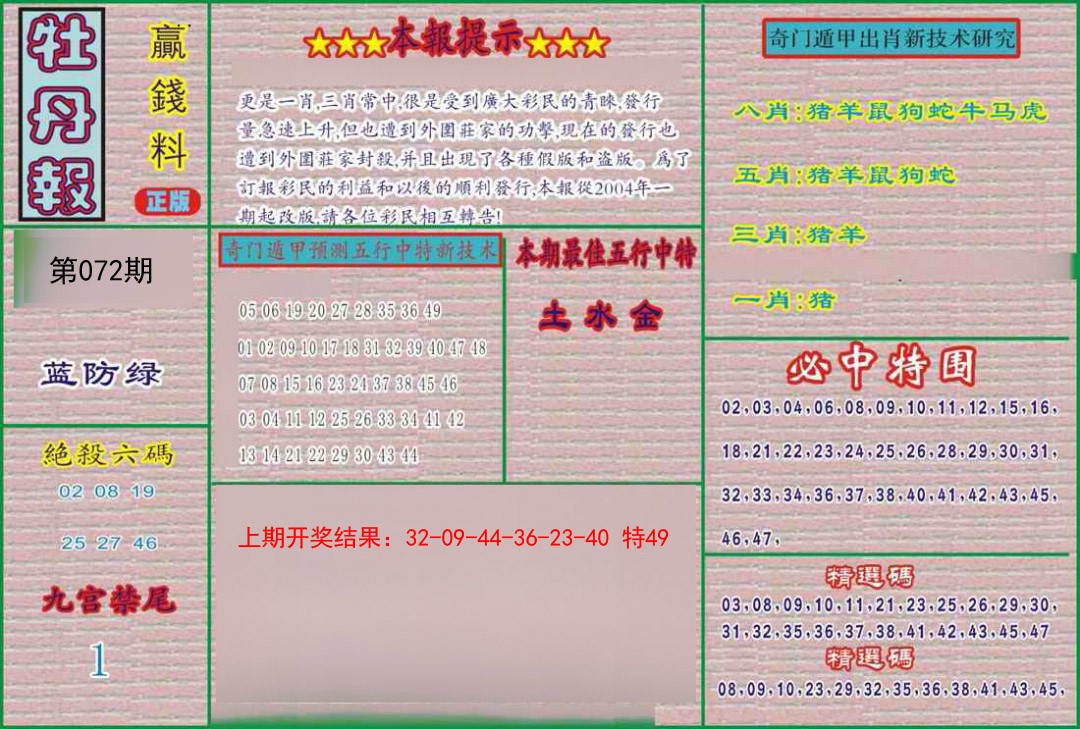 牡丹報
贏錢料
正版
★★★本報提示★★★
更是一肖,三肖常中,很是受到廣大彩民的青睞,發行
量急速上升,但也遭到外圍莊家的功擊,現在的發行也
遭到外圍莊家封殺,并且出現了各種假版和盗版。爲了
訂報彩民的利益和以後的順利發行,本報從2004年一
期起改版,請各位彩民相互轉告!
奇门遁甲出肖新技术研究
八肖:猪羊鼠狗蛇牛马虎
五肖:猪羊鼠狗蛇
三肖:猪羊
一肖:猪
第072期
蓝防绿
奇门遁甲预测五行中特新技术
05 06 19 20 27 28 35 36 49
01 02 09 10 17 18 31 32 39 40 47 48
07 08 15 16 23 24 37 38 45 46
03 04 11 12 25 26 33 34 41 42
13 14 21 22 29 30 43 44
本期最佳五行中特
土水金
必中特围
02,03,04,06,08,09,10,11,12,15,16,
18,21,22,23,24,25,26,28,29,30,31,
32,33,34,36,37,38,40,41,42,43,45,
46,47,
絶殺六碼
02 08 19
25 27 46
九宫禁尾
1
上期开奖结果：32-09-44-36-23-40 特49
精選碼
03,08,09,10,11,21,23,25,26,29,30,
31,32,35,36,37,38,41,42,43,45,47
精選碼
08,09,10,23,29,32,35,36,38,41,43,45,